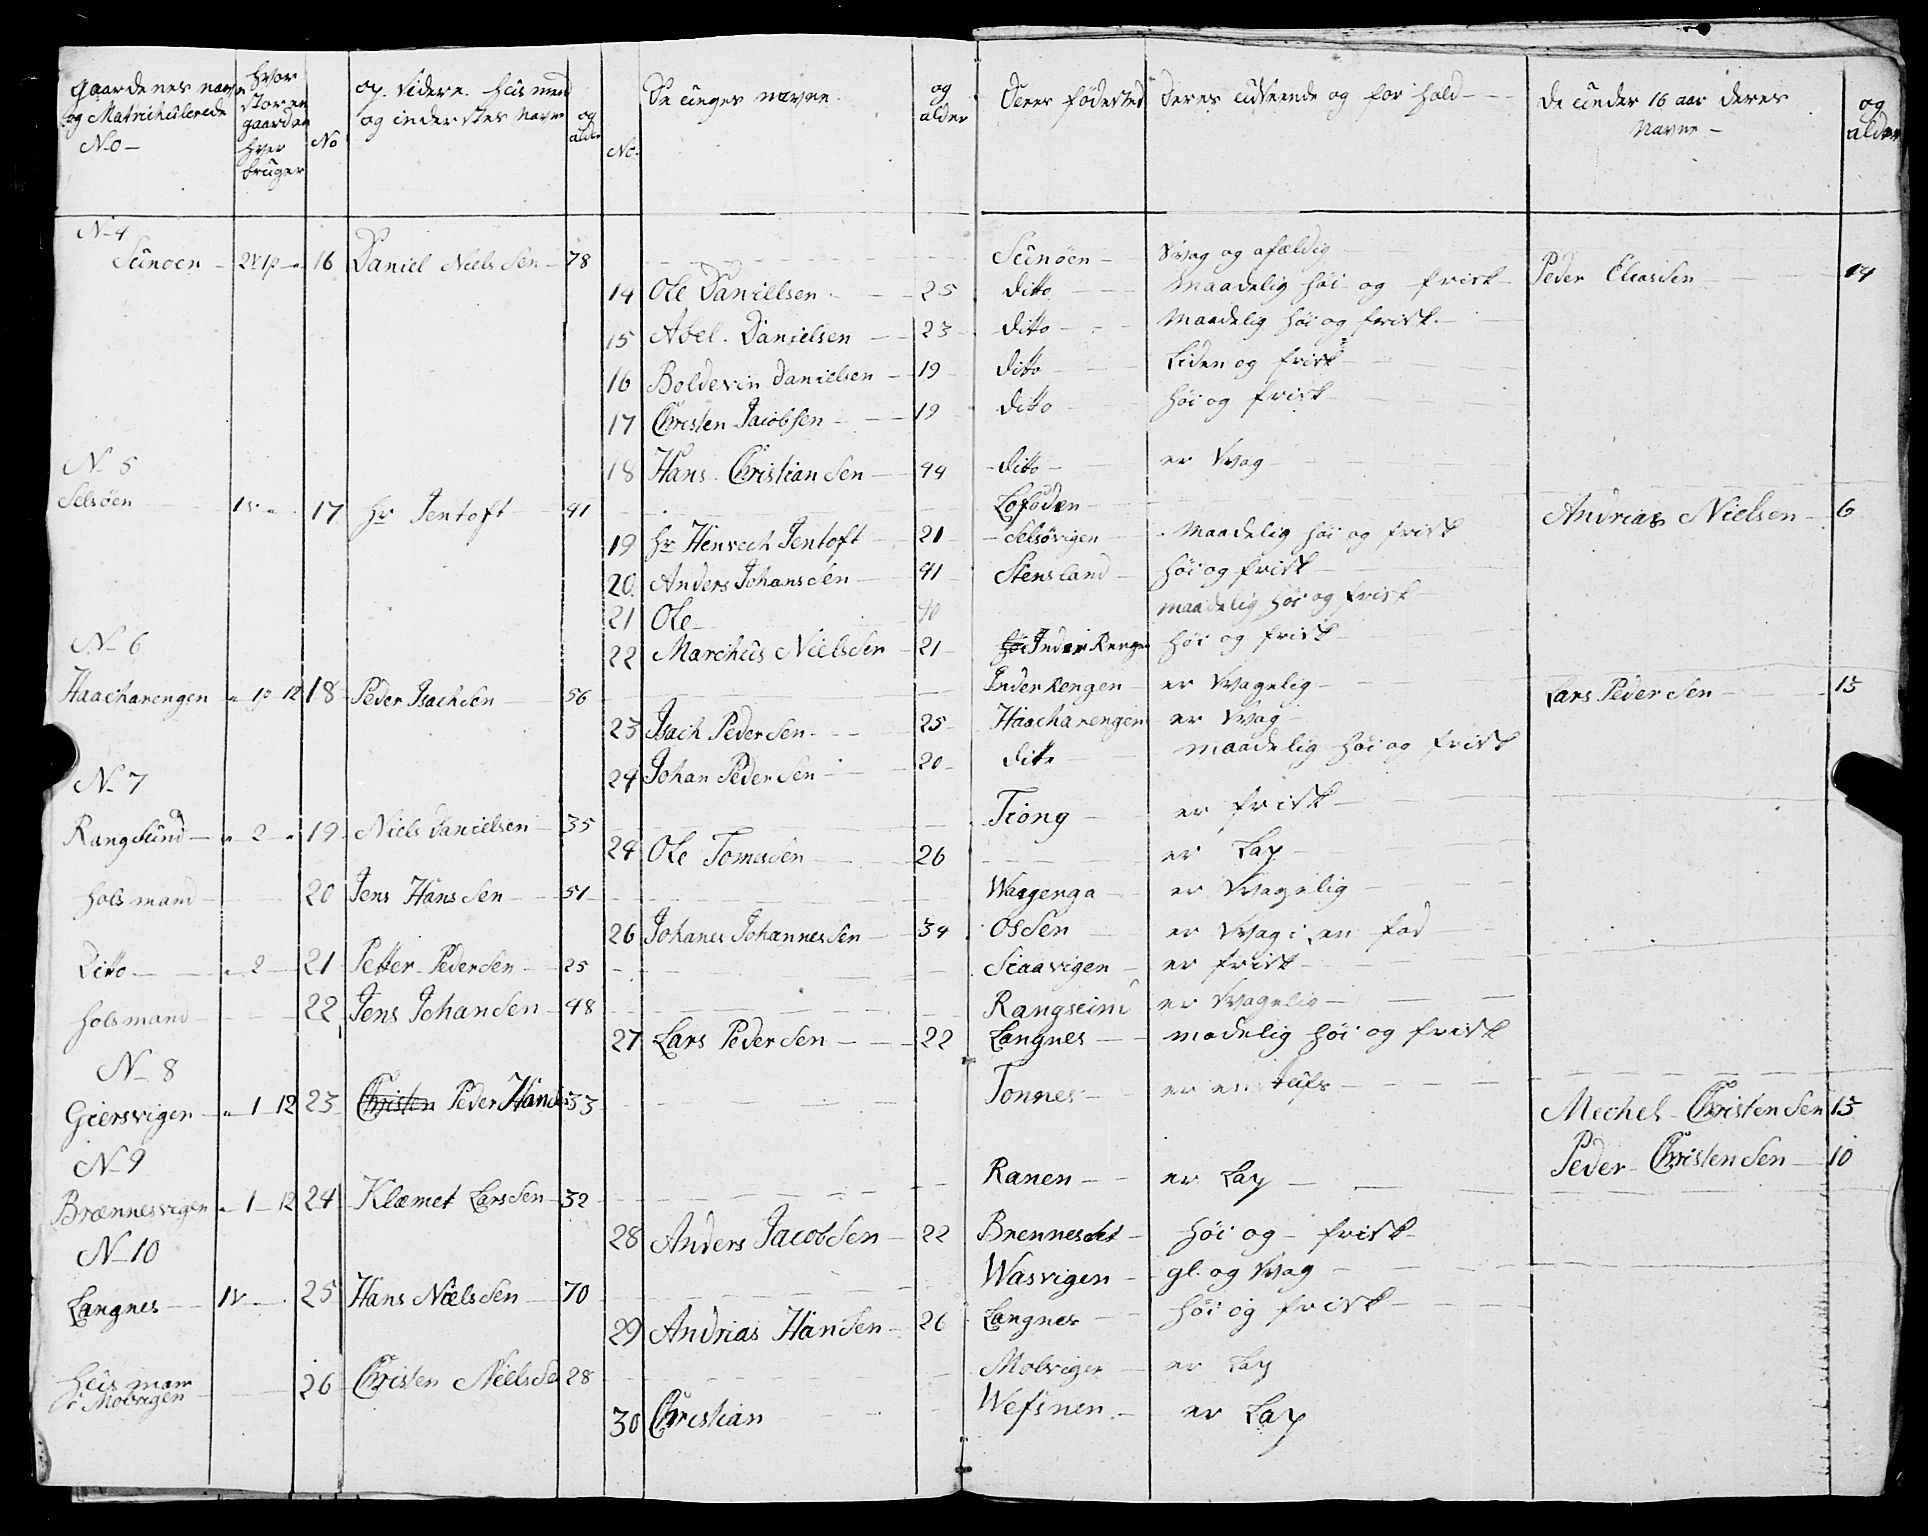 Gaardenes navn og Matriculerede No — | hvor stor en gaarden hver bruger | No | og videre husmend og inderstes navn | og alder | No | De unges navne | og alder | Deres fødested | Deres udseende og forhold | de under 16 aar deres navne — | og alder
N 4
Sunoen — | 16 | Daniel Nielssen — | 78 | Sunøen — | Svag og afældig | Peder Eliassen | 14
14 | Ole Danielsen — | 25 | ditto | maadelig høi og frisk
15 | Abel Danielsen — | 23 | ditto | maadelig høi og frisk
16 | Boldevin Danielsen — | 19 | ditto | Liden og frisk
17 | Christen Jacobsen — | 19 | ditto | høi og frisk
18 | Hans Christiansen — | 44 | ditto | er Svag
N 5
Selsøen | 1v | 17 | hr Jentoft | 41 | Lofoden — | Andrias Nielsen | 6
19 | hr Henrech Jentoft — | 21 | Selsøvigen | maadelig høi og frisk
20 | Anders Johansen — | 41 | Stensland | høi og frisk
21 | Ole — | 40 | maadelig høi og frisk
22 | Marchus Nielssen — | 21 | Inderrengen | høi og frisk
N 6
Haacharengen | 1p 12 | 18 | Peder Isachsen | 56 | Inderrengen | er Svagelig | Lars Pedersen — | 15
23 | Isach Pedersen — | 25 | Haacharengen | er Svag
24 | Johan Pedersen — | 20 | ditto | maadelig høi og frisk
N 7
Rangsund — | 2 | 19 | Niels Danielsen — | 35 | Tiong — | er frisk
24 | Ole Tomassen — | 26 | er Lap
holsmand | 20 | Jens Hanssen — | 51 | Waagenga | er Svagelig
26 | Johanes Johannessen — | 34 | Ossen | er Svag i en fod
Ditto — | 2 | 21 | Petter Pedersen — | 25 | Siaavigen | er frisk
holsmand | 22 | Jens Johansen — | 48 | Rangsund | er Svagelig
27 | Lars Pedersen — | 22 | Langnes | madelig høi og frisk
N 8
Giersvigen — | 1 12 | 23 | Christen Peder Hansen | 33 | Tonnes | er en tufs | Mechel Christensen | 15
Peder Christensen | 10
N 9
Brænnesvigen | 1 — 12 | 24 | Klæmet Larssen — | 32 | Ranen — | er Lap
28 | Anders Jacobsen — | 22 | Brenneset | høi og frisk
N 10
Langnes — | 1v | 25 | Hans Nielssen | 70 | Wasvigen — | gl. og Svag
29 | Andrias Hansen — | 26 | Langnes | høi og frisk
husmand i Molvigen | 26 | Christen Nielsen | 28 | Molvigen | er Lap
30 | Christian | Wefsnen | er Lap